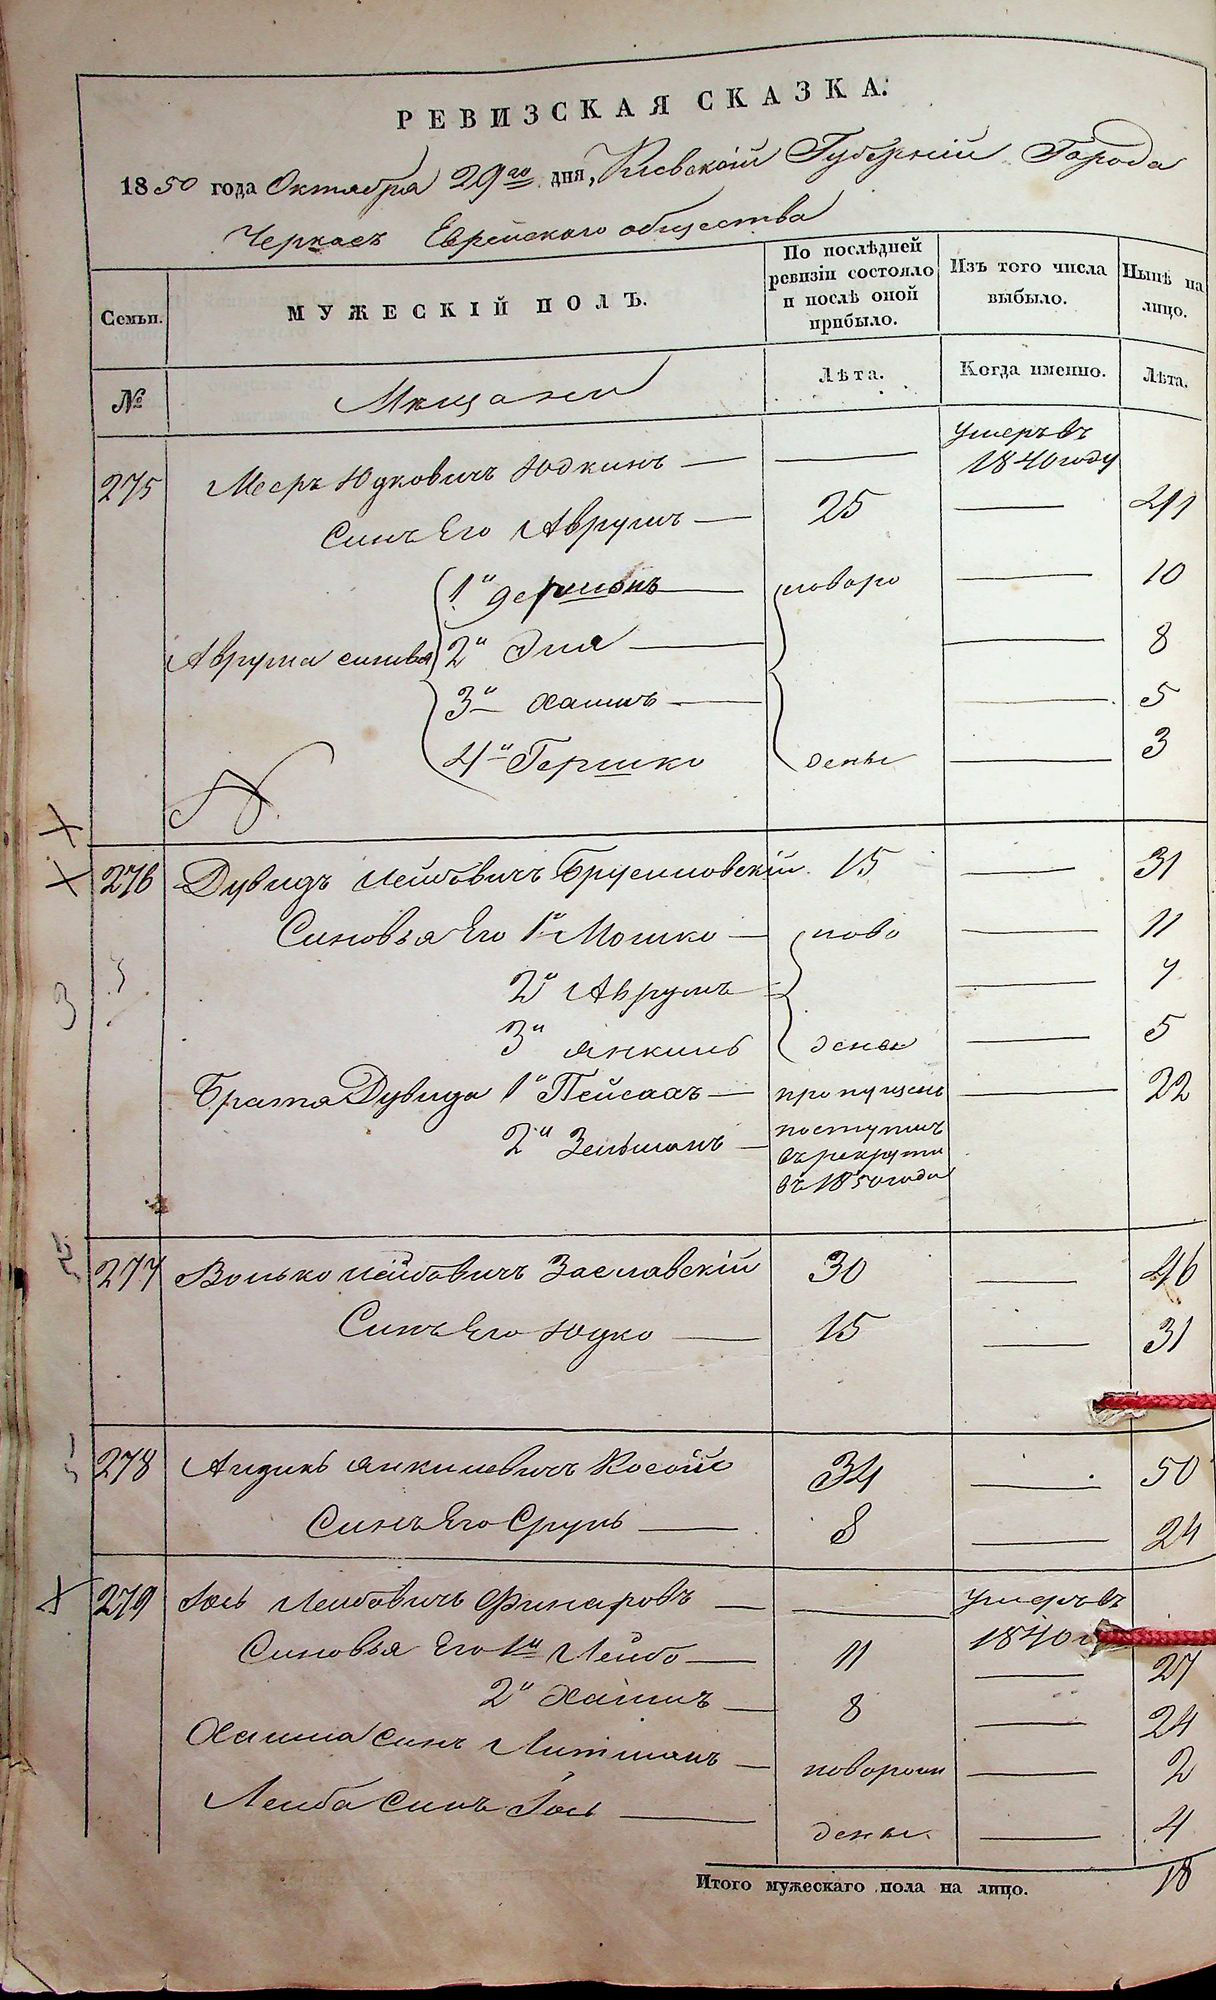 РЕВИЗСКАЯ СКАЗКА.
1850 года Октября 29го дня, Киевской Губернии Города
Черкас Еврейскаго общества
Семьи.
МУЖЕСКІЙ ПОЛЪ.
По послѣдней ревизіи состояло и послѣ оной прибыло.
Изъ того числа выбыло.
Нынѣ на лицо.
№
Мещане
Лѣта.
Когда именно.
Лѣта.
275 Мееръ Юдковичъ Юдкинъ — — умеръ въ 1840 году
Синъ Его Аврумъ — 25 — 41
1й — новоро — 10
Аврума синовья 2й Эля — — 8
3й Хаимъ — — 5
4й Гершко дены — 3
276 Дувидъ Лейбовичъ Брусиловскій 15 — 31
Синовья Его 1й Мошко — ново — 11
2й Аврумъ — 7
3й Янкиль дены — 5
Братя Дувида 1й Пейсахъ — пропущенъ — 22
2й Зельманъ — поступилъ
въ рекруты
въ 1850 года
277 Волько Лейбовичъ Заславскій 30 — 46
Синъ Его Юдко — 15 — 31
278 Айзикъ Янкилевичъ Косой 34 — 50
Синъ Его Сруль — 8 — 24
279 Іось Лейбовичъ Финаровъ — — умеръ въ
1840
Синовья Его 1й Лейбо — 11 — 27
2й Хаимъ — 8 — 24
Хаима синъ Литманъ — новорож — 2
Лейба Синъ Іось — дены. — 4
Итого мужескаго пола на лицо. 18